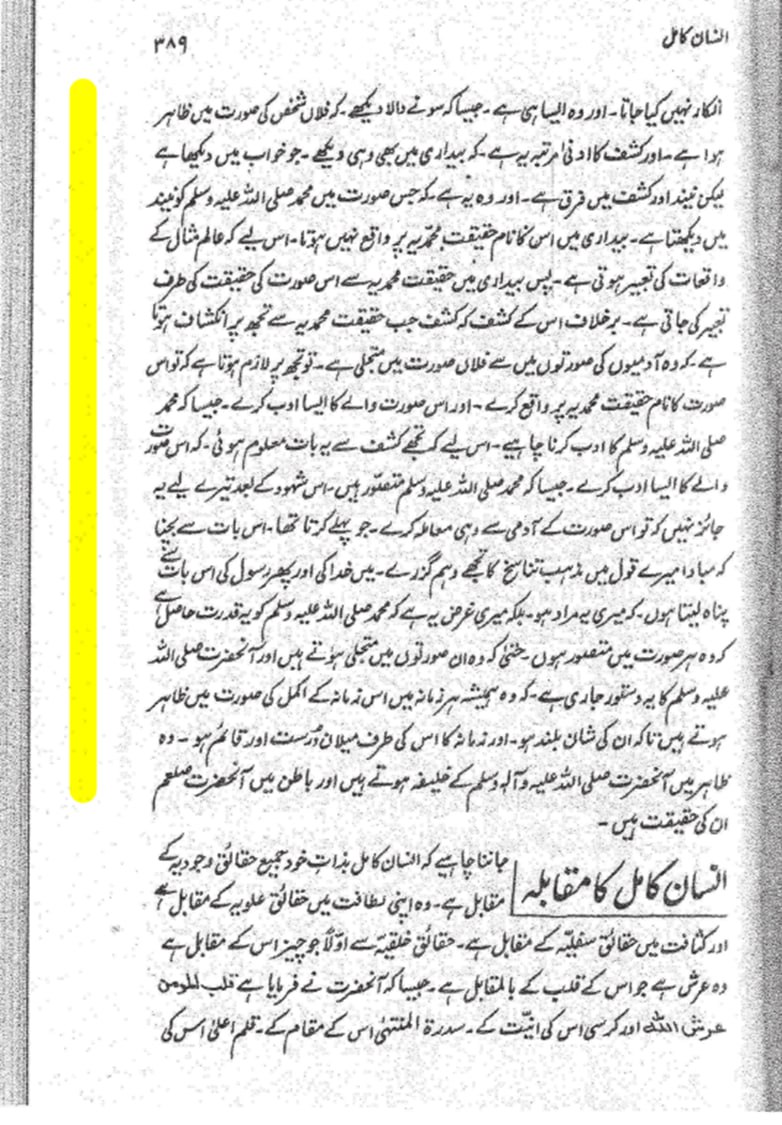 انسان کامل
۳۸۹
انکار نہیں کیا جاتا۔ اور وہ ایسا ہی ہے۔ جیسا کہ سونے والا دیکھے۔ کہ فلاں شخص کی صورت میں ظاہر
ہوا ہے۔ اور کشف کا ادنیٰ مرتبہ یہ ہے۔ کہ بیداری میں بھی وہی دیکھے۔ جو خواب میں دیکھا ہے
لیکن نیند اور کشف میں فرق ہے۔ اور وہ یہ ہے۔ کہ جس صورت میں محمد صلی اللہ علیہ وسلم کو نیند
میں دیکھتا ہے۔ بیداری میں اس کا نام حقیقت محمّدیہ پر واقع نہیں ہوتا۔ اس لیے کہ عالم مثال کے
واقعات کی تعبیر ہوتی ہے۔ پس بیداری میں حقیقت محمدیہ سے اس صورت کی حقیقت کی طرف
تعبیر کی جاتی ہے۔ برخلاف اس کے کشف کہ کشف جب حقیقت محمدیہ سے تجھ پر انکشاف ہوتا
ہے۔ کہ وہ آدمیوں کی صورتوں میں سے فلاں صورت میں متجلی ہے۔ تو تجھ پر لازم ہوتا ہے کہ تو اس
صورت کا نام حقیقت محمدیہ پر واقع کرے۔ اور اس صورت والے کا ایسا ادب کرے۔ جیسا کہ محمد
صلی اللہ علیہ وسلم کا ادب کرنا چاہیے۔ اس لیے کہ تجھے کشف سے یہ بات معلوم ہوئی۔ کہ اس صورت
والے کا ایسا ادب کرے۔ جیسا کہ محمد صلی اللہ علیہ وسلم متصوّر ہیں۔ اس شہود کے بعد تیرے لیے یہ
جائز نہیں کہ تو اس صورت کے آدمی سے وہی معاملہ کرے۔ جو پہلے کرتا تھا۔ اس بات سے بچنا
کہ مبادا میرے قول میں مذہب تناسخ کا تجھے وہم گزرے۔ میں خدا کی اور پھر رسول کی اس بات سے
پناہ لیتا ہوں۔ کہ میری یہ مراد ہو۔ بلکہ میری غرض یہ ہے کہ محمد صلی اللہ علیہ وسلم کو یہ قدرت حاصل ہے
کہ وہ ہر صورت میں متصور ہوں۔ حتیٰ کہ وہ ان صورتوں میں متجلی ہوتے ہیں اور آنحضرت صلی اللہ
علیہ وسلم کا یہ دستور جاری ہے۔ کہ وہ ہمیشہ ہر زمانہ میں اس زمانہ کے اکمل کی صورت میں ظاہر
ہوتے ہیں تاکہ ان کی شان بلند ہو۔ اور زمانہ کا اس کی طرف میلان درست اور قائم ہو۔ وہ
ظاہر میں آنحضرت صلی اللہ علیہ وآلہ وسلم کے خلیفہ ہوتے ہیں اور باطن میں آنحضرت صلعم
ان کی حقیقت ہیں۔
انسان کامل کا مقابلہ
جاننا چاہیے کہ انسان کامل بذات خود جمیع حقائق وجودیہ کے
مقابل ہے۔ وہ اپنی لطافت میں حقائق علویہ کے مقابل ہے
اور کثافت میں حقائق سفلیّہ کے مقابل ہے۔ حقائق خلقیّہ سے اوّلاً جو چیز اس کے مقابل ہے
وہ عرش ہے جو اس کے قلب کے بالمقابل ہے۔ جیسا کہ آنحضرت نے فرمایا ہے قلب المومن
عرش اللہ اور کرسی اس کی انیّت کے۔ سدرۃ المنتہیٰ اس کے مقام کے۔ قلم اعلیٰ اس کی